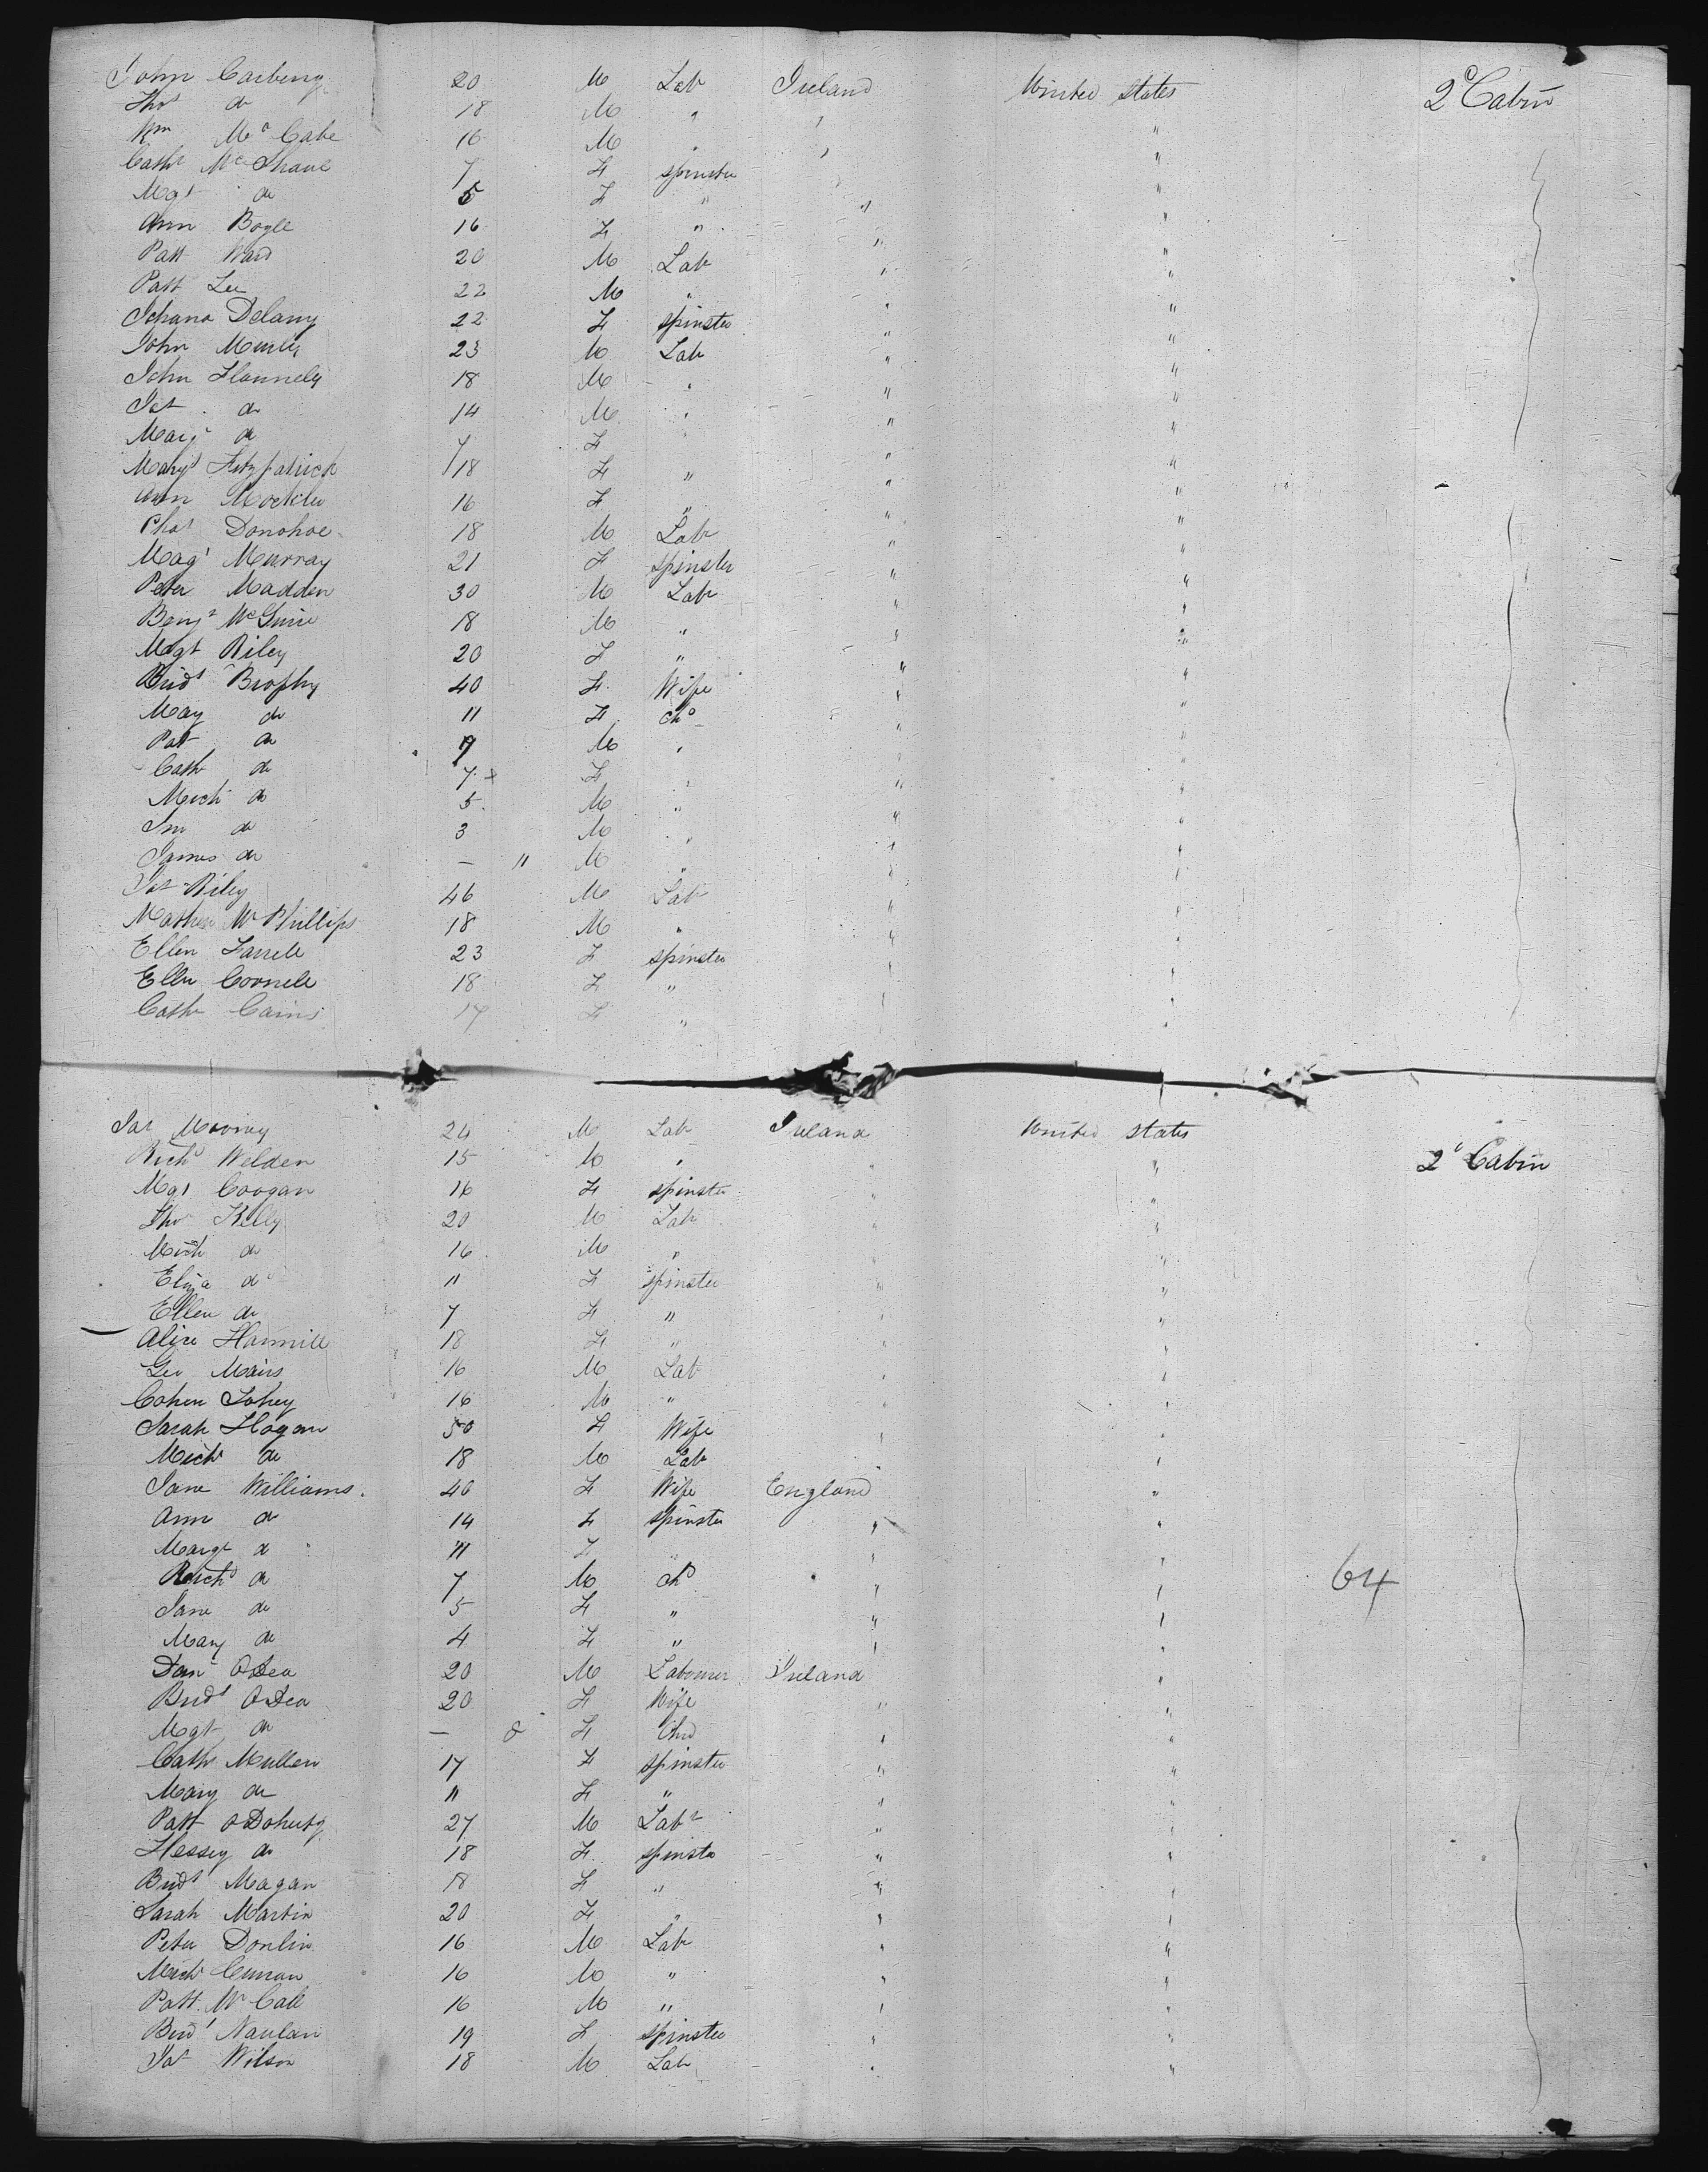 John Carberry 20 M Lab Ireland United States 2d Cabin
Thos do 18 M " " "
Wm McCabe 16 M " " "
Cathe McShane 7 F spinster " "
Mgt do 6 F " " "
Ann Boyle 16 F " " "
Patt Ward 20 M Lab " "
Patt Lee 22 M " " "
Johana Delany 22 F spinster " "
John 23 M Lab " "
John Flannely 18 M " " "
Jas do 14 M " " "
Mary do 7 F " " "
Margt Fitzpatrick 18 F " " "
Ann Mockler 16 F " " "
Chas Donohoe 18 M Lab " "
Magt Murray 21 F spinster " "
Peter Madden 30 M Lab " "
Benj McGuire 18 M " " "
Mgt Riley 20 F " " "
Bridt Brophy 40 F Wife " "
Mary do 11 F chd " "
Pat do 9 M " " "
Cath do 7 F " " "
Mich do 5 M " " "
Jno do 3 M " " "
James do — 11 M " " "
Jas Riley 46 M Lab " "
Mathew McPhillips 18 M " " "
Ellen Farrell 23 F spinster " "
Ellen Connell 18 F " " "
Cath Cairns 17 F " " "
Jas Mooney 24 M Lab Ireland United States
Richd Welden 15 M " " " 2d Cabin
Mgt Coogan 16 F spinster " "
Thos Kelly 20 M Lab " "
Mich do 16 M " " "
Eliza do 11 F spinster " "
Ellen do 7 F " " "
Alice Hammill 18 F " " "
Geo Mairs 16 M Lab " "
Cohen Fahey 16 M " " "
Sarah Hogan 50 F Wife " "
Michl do 18 M Lab " "
Jane Williams. 40 F Wife England "
Ann do 14 F spinster " "
Margt do 11 F " " "
Richd do 7 M chd " " 64
Jane do 5 F " " "
Mary do 4 F " " "
Danl ODea 20 M Labourer Ireland "
Bridt ODea 20 F Wife " "
Mgt do — 8 F Chd " "
Cathe Mullen 17 F spinster " "
Mary do 11 F " " "
Patt ODoherty 27 M Labr " "
Hessey do 18 F spinster " "
Bridt Magan 18 F " " "
Sarah Martin 20 F " " "
Peter Donlin 16 M Lab " "
Michl Curran 16 M " " "
Patt McCall 16 M " " "
Bridt Naulan 19 F spinster " "
Jas Wilson 18 M Lab " "